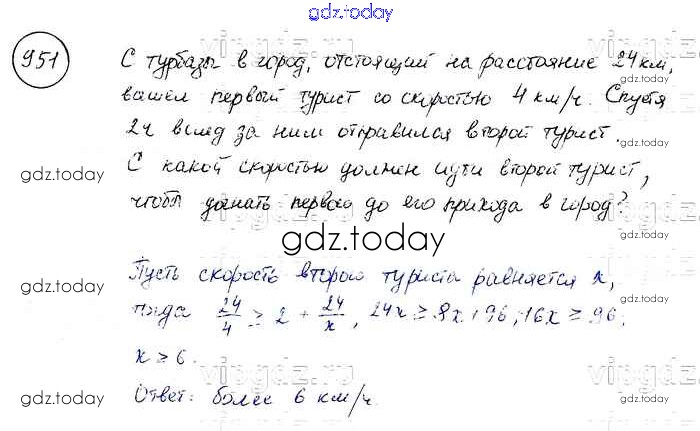 gdz.today
951
С турбазы в город, отстоящий на расстояние 24 км,
вышел первый турист со скоростью 4 км/ч. Спустя
2ч вслед за ним отправился второй турист.
С какой скоростью должен идти второй турист,
чтобы догнать первого до его прихода в город?
gdz.today
gdz.today
gdz.today
Пусть скорость второго туриста равняется x,
тогда 24/4 ≥ 2 + 24/x, 24x ≥ 8x + 96; 16x ≥ 96;
x ≥ 6.
Ответ: более 6 км/ч.
gdz.today
gdz.today
gdz.today
gdz.today